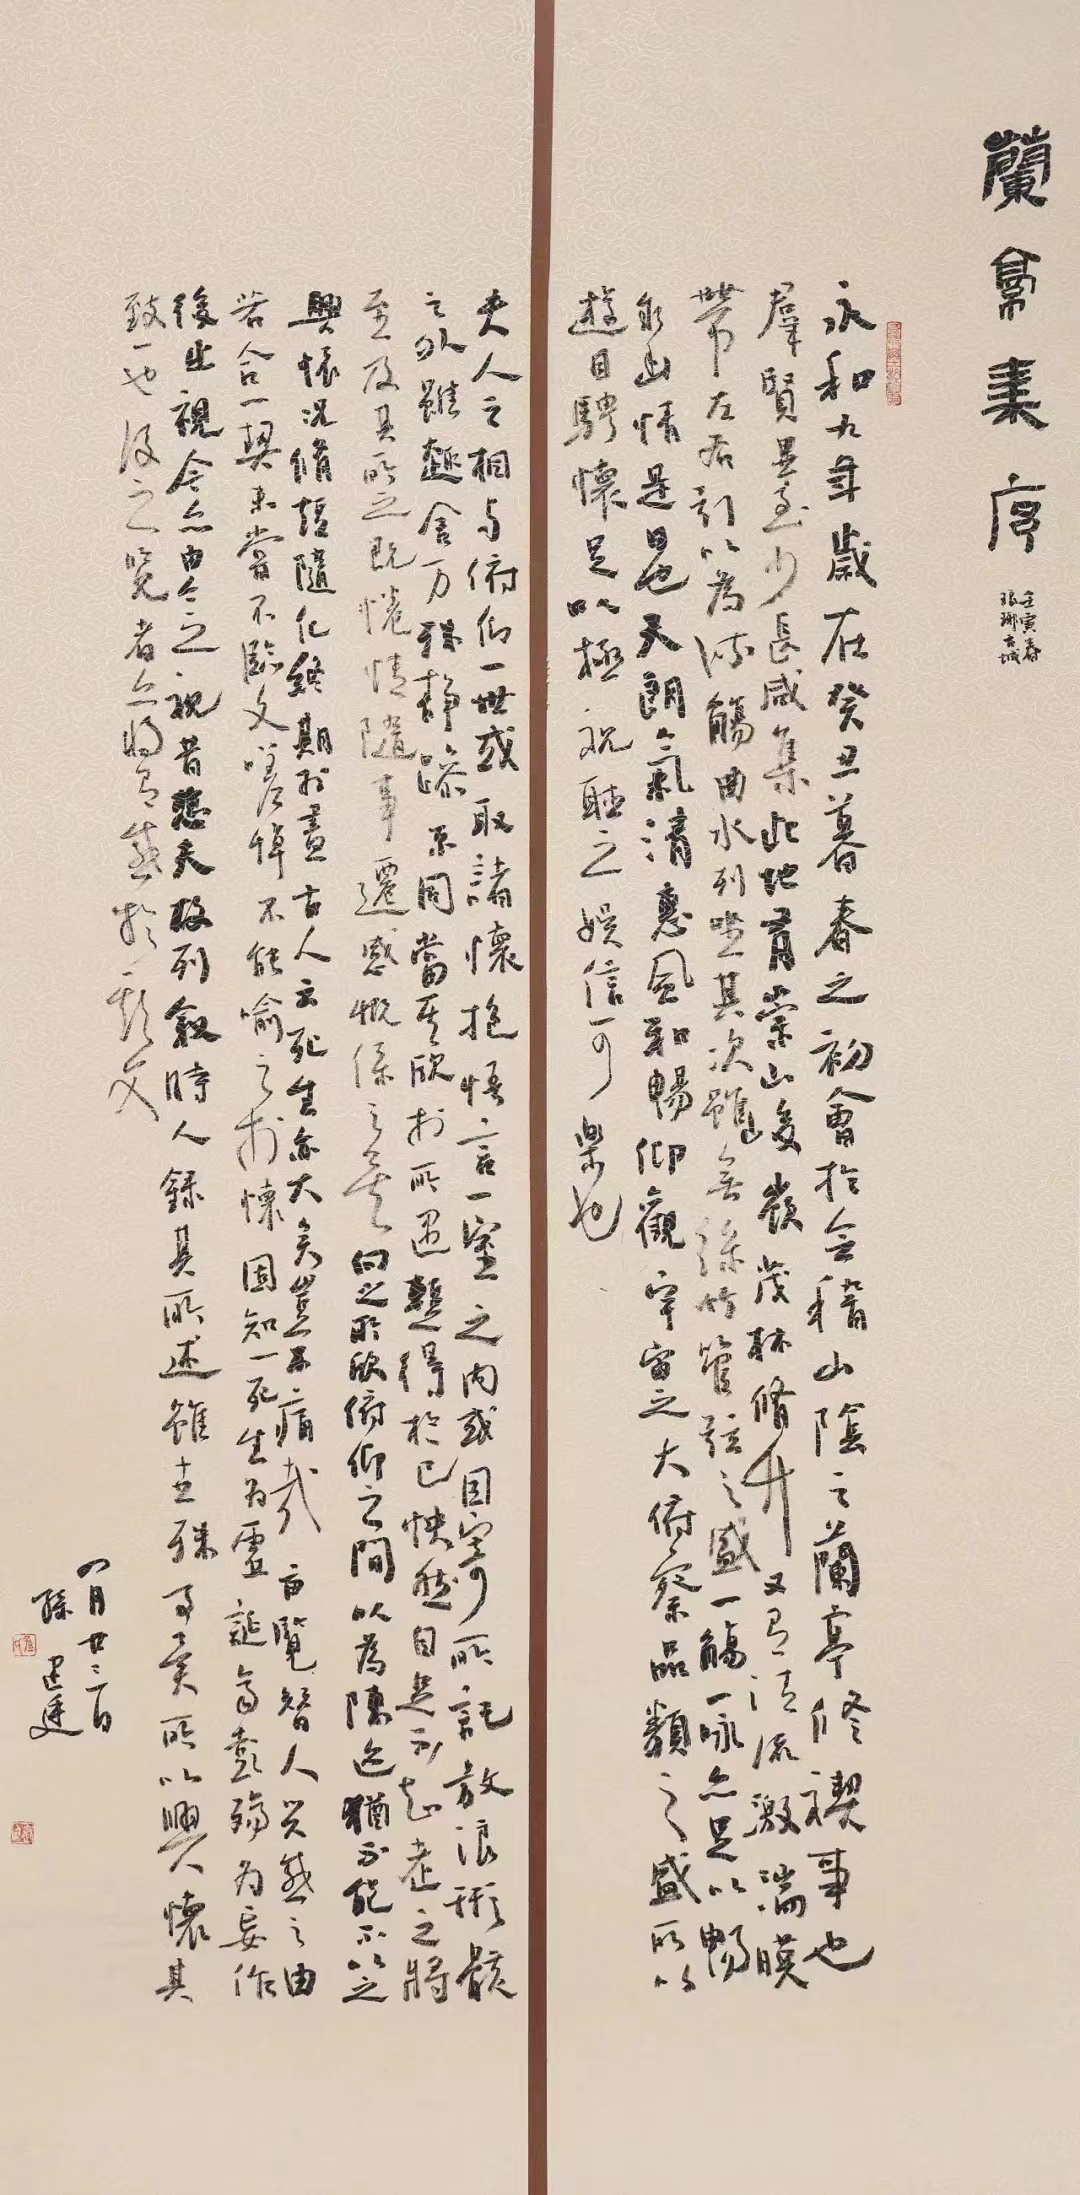 蘭亭集序
壬寅春
永和九年歲在癸丑暮春之初會於會稽山陰之蘭亭修禊事也
羣賢畢至少長咸集此地有崇山峻嶺茂林脩竹又有清流激湍暎
帶左右引以為流觴曲水列坐其次雖無絲竹管弦之盛一觴一詠亦足以暢
幽情是日也天朗氣清惠風和暢仰觀宇宙之大俯察品類之盛所以
遊目騁懷足以極視聽之娛信可樂也
夫人之相與俯仰一世或取諸懷抱悟言一室之內或因寄所託放浪形骸
之外雖趣舍万殊靜躁不同當其欣於所遇暫得於己怏然自足不知老之將
至及其所之既惓情隨事遷感慨係之矣向之所欣俯仰之間以為陳迹猶不能不以之
興懷況脩短隨化終期於盡古人云死生亦大矣豈不痛哉每覽昔人興感之由
若合一契未嘗不臨文嗟悼不能喻之於懷固知一死生為虛誕齊彭殤為妄作
後之視今亦由今之視昔悲夫故列敘時人錄其所述雖世殊事異所以興懷其
致一也後之覽者亦將有感於斯文
四月廿二日
孫建